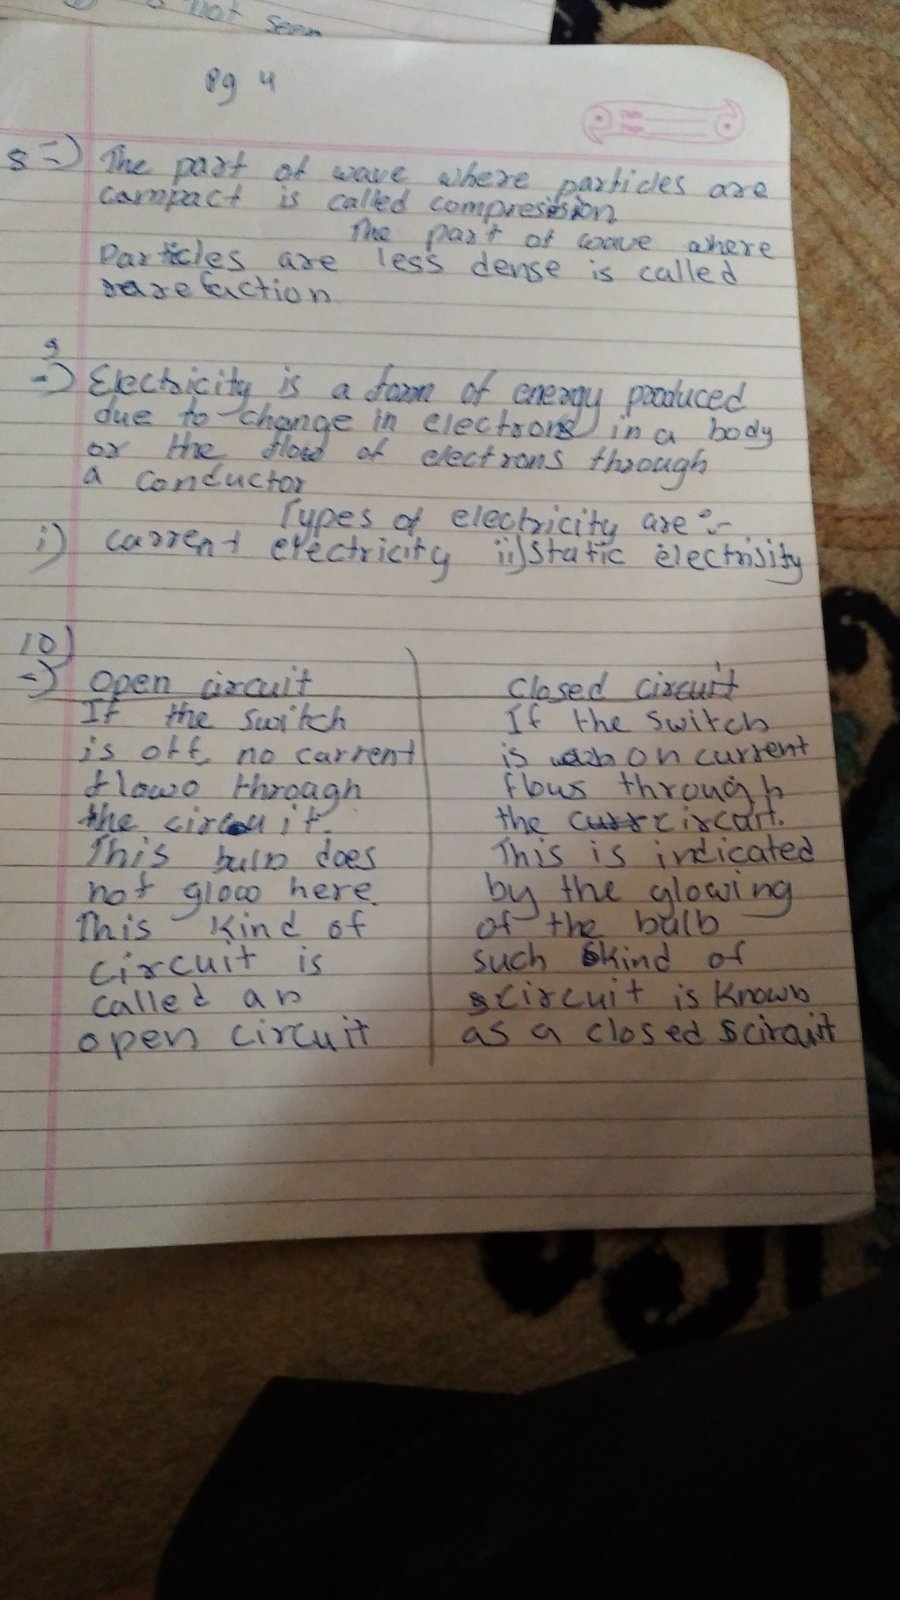 is not seen
pg 4
8 =) The part of wave where particles are
campact is called compression.
The part of wave where
Particles are less dense is called
rarefaction
9
=) Electricity is a form of energy produced
due to change in electrons in a body
or the flow of electrons through
a conductor
Types of electricity are :-
i) carrent electricity ii) static electrisity
10)
=) open circuit
If the switch
is off, no current
flows throagh
the circuit.
This bulb does
not glow here.
This kind of
circuit is
called an
open circuit
closed circuit
If the switch
is on current
flows through
the circuit.
This is indicated
by the glowing
of the balb
such kind of
circuit is known
as a closed